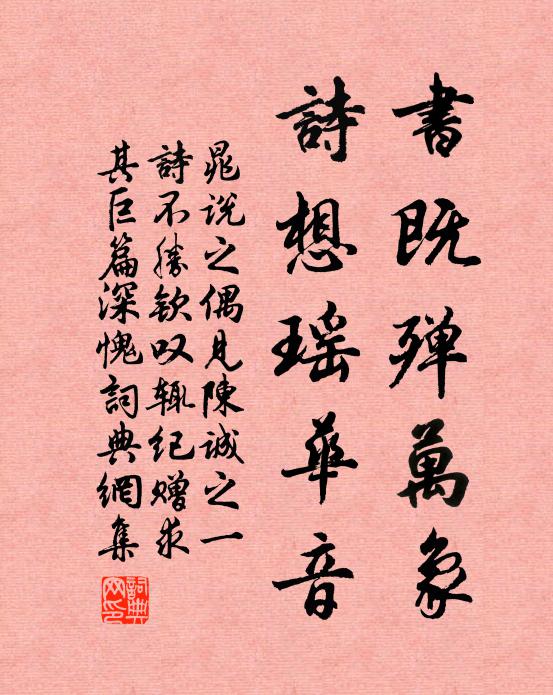 書既殫萬象
詩想瑶華音
晁说之偶見陳诚之一
詩不勝欽叹辄纪赠求
其巨篇深愧詞典網集
詞典网印